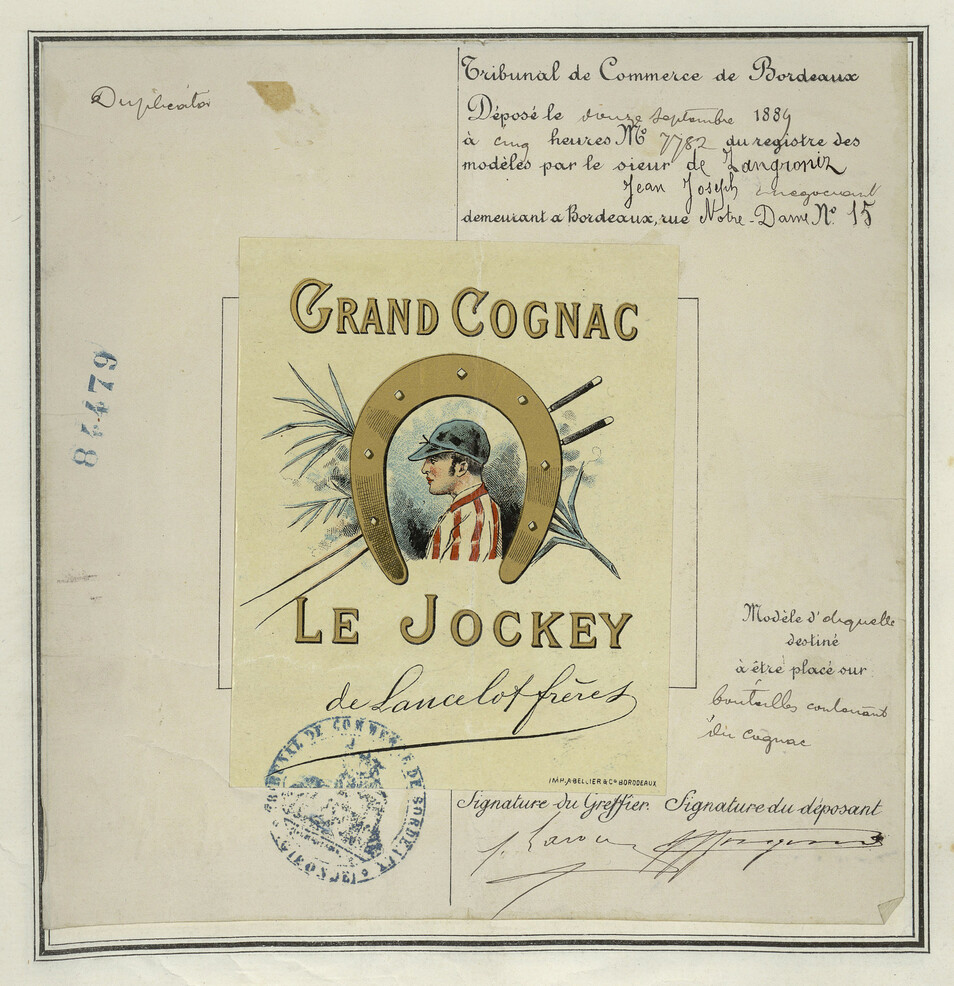 Duplicata
Tribunal de Commerce de Bordeaux
Déposé le douze Septembre 1889
à cinq heures No 7782 du registre des
modèles par le sieur de Langroniz
Jean Joseph negociant
demeurant a Bordeaux, rue Notre-Dame No. 15
84479
GRAND COGNAC
LE JOCKEY
de Lancelot frères
IMP. A. BELLIER & Co BORDEAUX
Modèle d'etiquette
destiné
à être placé sur
bouteilles contenant
du Cognac
TRIBUNAL DE COMMERCE DE BORDEAUX
Signature du Greffier. Signature du déposant